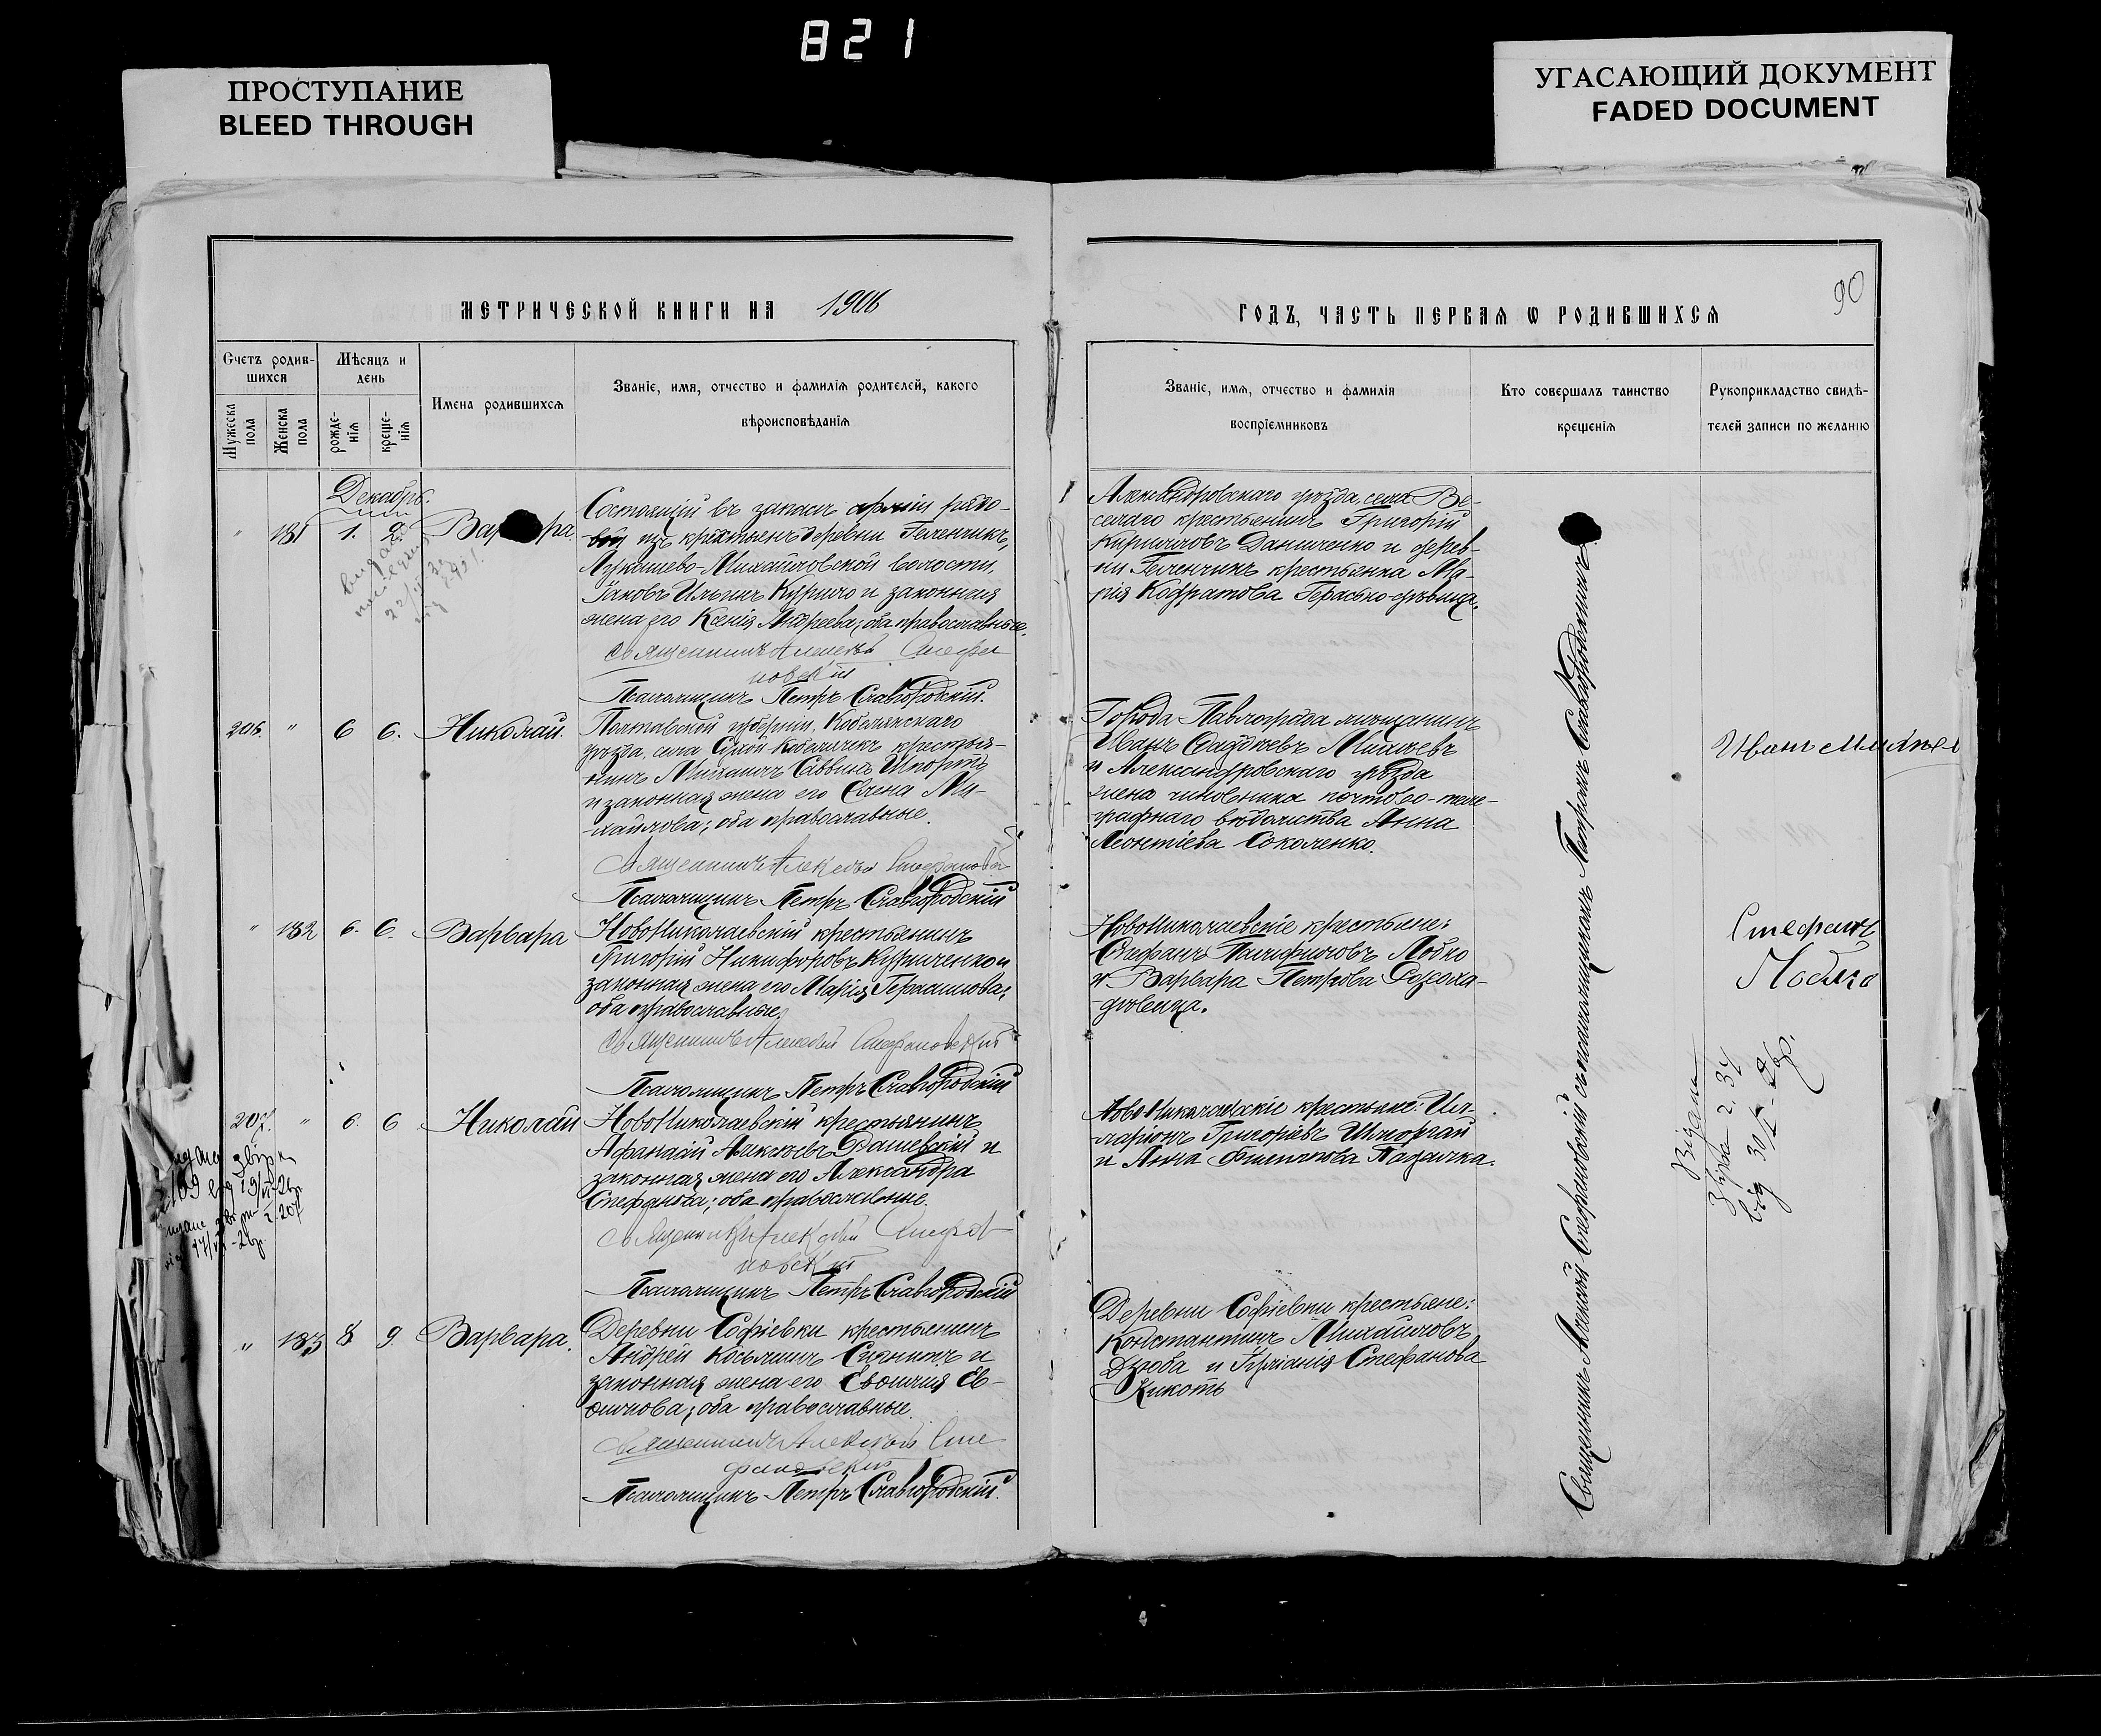 821
ПРОСТУПАНИЕ
BLEED THROUGH
УГАСАЮЩИЙ ДОКУМЕНТ
FADED DOCUMENT
90
МЕТРИЧЕСКОЙ КНИГИ НА 1906
ГОДЪ, ЧАСТЬ ПЕРВАЯ Ѡ РОДИВШИХСЯ
Счетъ родив-
шихся
Мужеска
пола
Женска
пола
Мѣсяцъ и
день
рожде-
нія
креще-
нія
Имена родившихся
Званіе, имя, отчество и фамилія родителей, какого
вѣроисповѣданія
Званіе, имя, отчество и фамилія
воспріемниковъ
Кто совершалъ таинство
крещенія
Рукоприкладство свидѣ-
телей записи по желанію
Декабрь.
" 181 1. 2. Вар ра
Состоящій въ запасѣ арміи рядо-
вой изъ крестьянъ деревни Геленчикъ,
Михайловской волости,
Іаковъ Ильинъ Курило и законная
жена его Ксенія Андреева; оба православные.
Священникъ Алексѣй Стефа
новскій
Псаломщикъ Петръ Славгородскій.
Александровскаго уѣзда, села Ве-
селаго крестьянинъ Григорій
Кирилловъ Даниченко и дерев-
ни Геленчикъ крестьянка Ма-
рія Кодратова Герасько-дѣвица.
206. " 6 6. Николай.
Полтавской губерніи, Кобелякскаго
уѣзда, села Сухой Кобелячекъ крестья-
нинъ Михаилъ Саввинъ
и законная жена его Елена Ми-
хайлова; оба православные.
Священникъ Алексѣй Стефановскій
Псаломщикъ Петръ Славгородскій
Города Павлограда мѣщанинъ
Иванъ
и Александровскаго уѣзда
жена чиновника почтово-теле-
графнаго вѣдомства Анна
Леонтіева Соколенко.
Иванъ
" 182 6. 6. Варвара
Новониколаевскій крестьянинъ
Григорій Никифоровъ Кириченко и
законная жена его Марія Герасимова;
оба православные.
Священникъ Алексѣй Стефановскій
Псаломщикъ Петръ Славгородскій
Новониколаевскіе крестьяне:
Стефанъ Панфиловъ Лобко
и Варвара Петрова
дѣвица.
Стефанъ
Лобко
207. " 6. 6 Николай
Новониколаевскій крестьянинъ
Афанасій Алексѣевъ Дашевскій и
законная жена его Александра
Стефанова; оба православные.
Священникъ Алексѣй Стефа
новскій
Псаломщикъ Петръ Славгородскій
Новониколаевскіе крестьяне: Ил-
ларіонъ Григорьевъ Шпортай
и Анна Филиппова Падалка.
Видано
2. 34
від 30/
" 183 8 9. Варвара.
Деревни Софіевки крестьянинъ
Андрей Косьминъ и
законная жена его Евфимія Ев-
фимова; оба православные.
Священникъ Алексѣй Сте
фановскій
Псаломщикъ Петръ Славгородскій.
Деревни Софіевки крестьяне:
Константинъ Михайловъ
Дзюба и Іуліанія Стефанова
Кикоть
Священникъ Алексѣй Стефановскій съ псаломщикомъ Петромъ Славгородскимъ